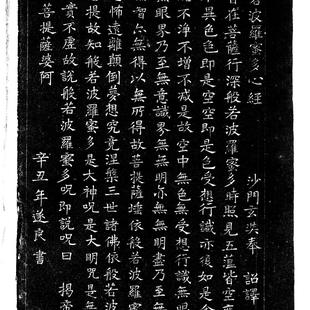 若波羅蜜多心經
沙門玄奘奉 詔譯
在菩薩行深般若波羅蜜多時照見五蘊皆空
不異色色即是空空即是色受想行識亦復如是舍
不淨不增不減是故空中無色無受想行識無眼
無眼界乃至無意識界無無明亦無無明盡乃至無
無智亦無得以無所得故菩提薩埵依般若波羅蜜
怖遠離顛倒夢想究竟涅槃三世諸佛依般若波
菩提故知般若波羅蜜多是大神咒是大明咒是無
實不虛故說般若波羅蜜多咒即說咒曰 揭帝
菩提薩婆阿
辛丑年遂良書